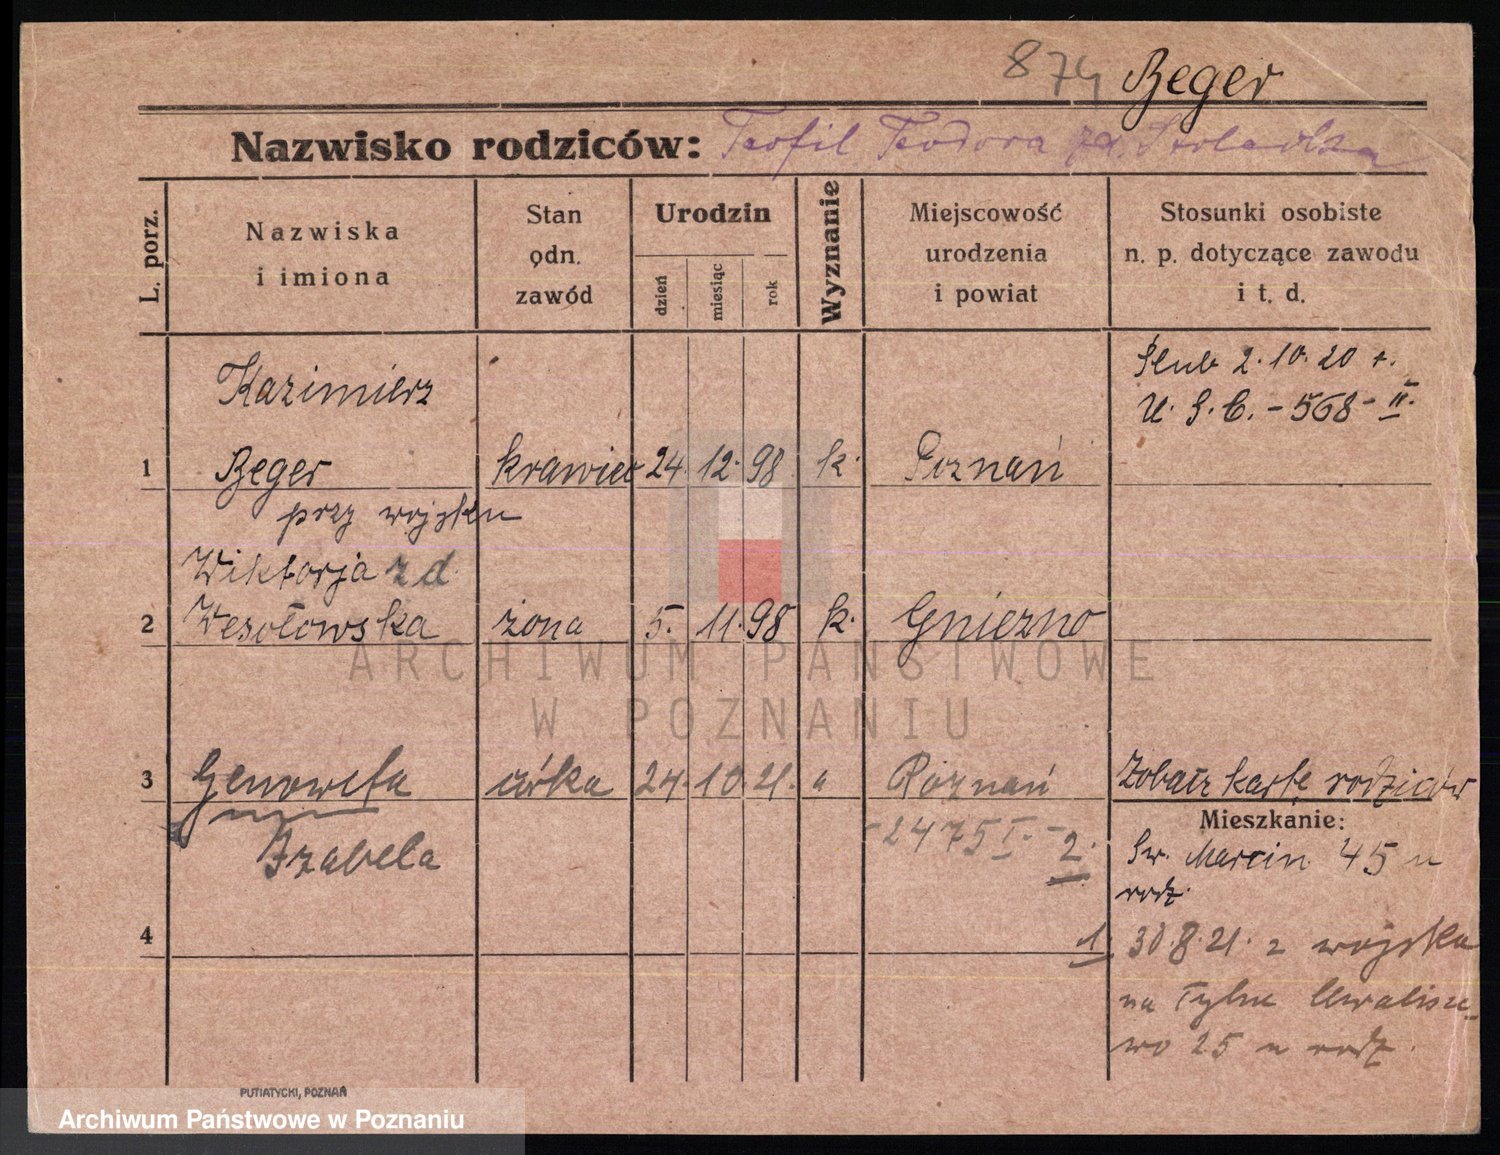 874 Beger
Nazwisko rodziców: Teofil Teodora zd.
L. porz.
Nazwiska
i imiona
Stan
odn.
zawód
Urodzin
dzień
miesiąc
rok
Wyznanie
Miejscowość
urodzenia
i powiat
Stosunki osobiste
n. p. dotyczące zawodu
i t. d.
Kazimierz
Ślub 2.10.20 r.
U. S. C. - 568 - II.
1 Beger krawiec 24. 12. 98 k. Poznań
przy wojsku
Wiktorja zd
2 Wesołowska żona 5. 11. 98 k. Gniezno
3 Genowefa córka 24. 10. 21. " Poznań Zobacz kartę rodziców
- 2475 I. - 2.
Izabela
Mieszkanie:
Św. Marcin 45 u
rodz.
4
1 30.8.21. z wojska
na Tylne Chwalisze-
wo 25 u rodz.
PUTIATYCKI, POZNAŃ
ARCHIWUM PAŃSTWOWE
W POZNANIU
Archiwum Państwowe w Poznaniu